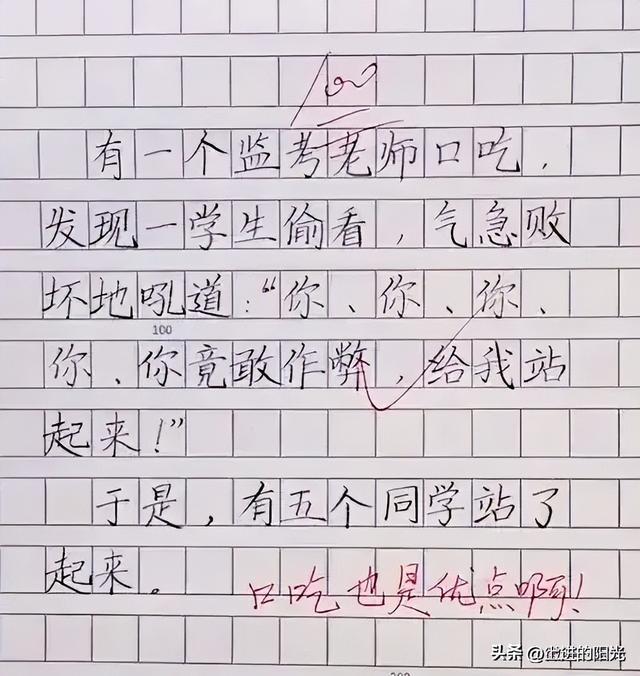 100
有一个监考老师口吃，
发现一学生偷看，气急败
坏地吼道：“你、你、你、
100
你、你竟敢作弊，给我站
起来！”
于是，有五个同学站了
起来。
口吃也是优点啊！
头条 @进的阳光